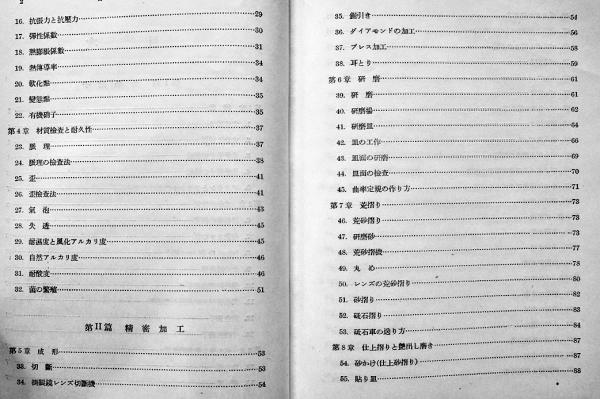 2
16. 抗張力と抗壓力 29
17. 彈性係數 30
18. 熱膨脹係數 31
19. 熱傳導率 34
20. 軟化點 34
21. 變態點 35
22. 有機硝子 35
第4章 材質檢査と耐久性 37
23. 脈理 37
24. 脈理の檢査法 38
25. 歪 41
26. 歪檢査法 41
27. 氣泡 43
28. 失透 45
29. 耐濕度と風化アルカリ度 45
30. 自然アルカリ度 46
31. 耐酸度 46
32. 菌の繁殖 51
第II篇 精密加工
第5章 成形 53
33. 切斷 53
34. 樹眼鏡レンズ切斷機 54
35. 鋸引き 54
36. ダイアモンドの加工 56
37. プレス加工 58
38. 耳とり 59
第6章 研磨 61
39. 研磨 61
40. 研磨場 62
41. 研磨皿 64
42. 皿の工作 66
43. 皿面の研磨 69
44. 皿面の檢査 70
45. 曲率定規の作り方 71
第7章 荒摺り 73
46. 荒砂摺り 73
47. 研磨砂 73
48. 荒砂摺機 77
49. 丸め 78
50. レンズの荒砂摺り 80
51. 砂摺り 82
52. 砥石摺り 83
53. 砥石車の送り方 84
第8章 仕上摺りと艶出し磨き 87
54. 砂かけ(仕上砂摺り) 87
55. 貼り皿 88